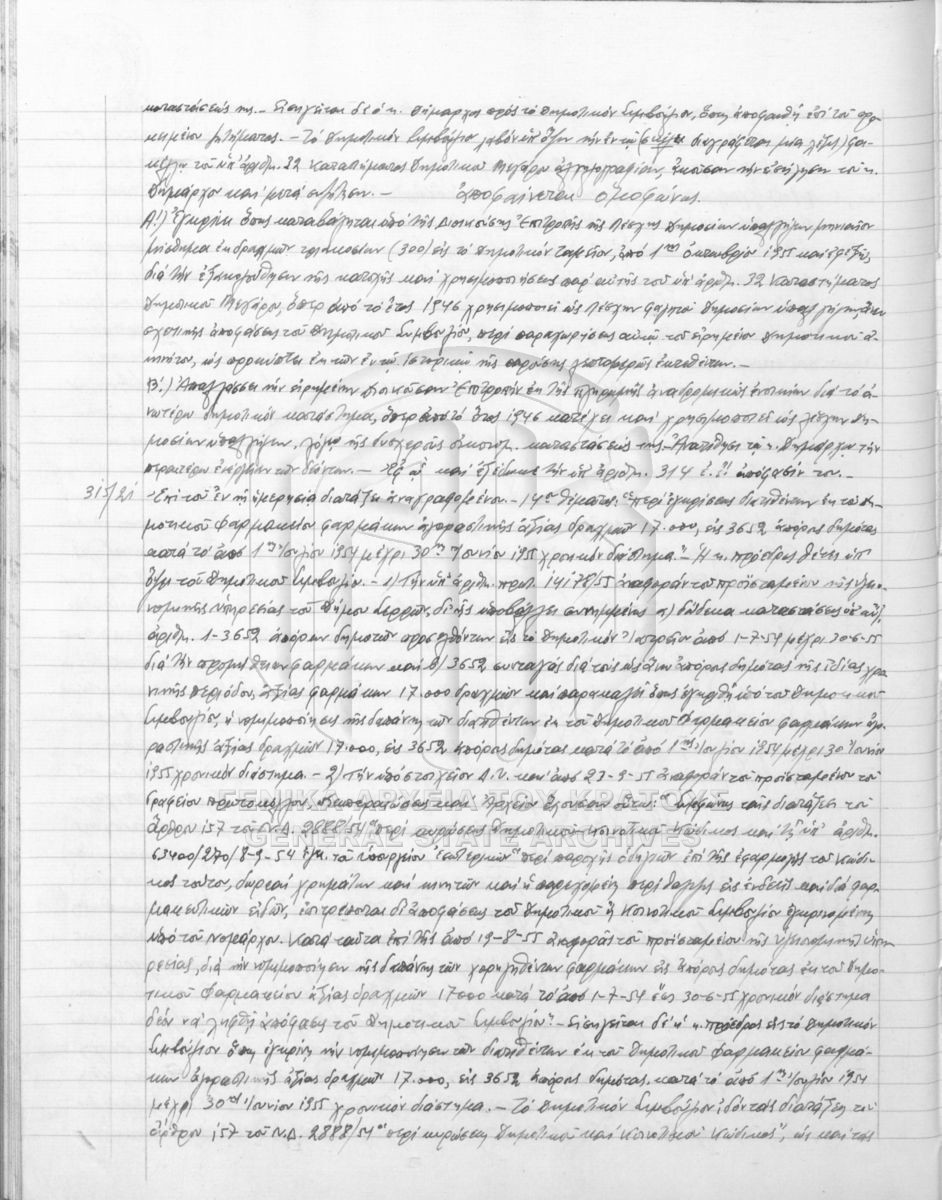 καταστάσεώς της.- Εἰσηγεῖται δὲ ὁ κ. Δήμαρχος πρὸς τὸ Δημοτικὸν Συμβούλιον, ὅπως ἀποφανθῇ ἐπὶ τοῦ προ-
κειμένου ζητήματος.- Τὸ Δημοτικὸν Συμβούλιον λαβὸν ὑπ' ὄψιν τὴν ἐν τῷ (διαγράφεται μία λέξις) φα-
κέλῳ τοῦ ὑπ' ἀριθμ. 32 καταστήματος Δημοτικοῦ Μεγάρου ἀλληλογραφίαν, ἀκοῦσαν τὴν εἰσήγησιν τοῦ κ.
Δημάρχου καὶ μετὰ συζήτησιν.- ἀποφαίνεται ὁμοφώνως.
Α'.) Ἐγκρίνει ὅπως καταβάληται ὑπὸ τῆς Διοικούσης Ἐπιτροπῆς τῆς Λέσχης Δημοσίων ὑπαλλήλων μηνιαῖον
μίσθωμα ἐκ δραχμῶν τριακοσίων (300) εἰς τὸ Δημοτικὸν ταμεῖον, ἀπὸ 1ης Ὀκτωβρίου 1955 καὶ ἐφεξῆς
διὰ τὴν ἐξακολούθησιν τῆς κατοχῆς καὶ χρησιμοποιήσεως παρ' αὐτῆς τοῦ ὑπ' ἀριθμ. 32 καταστήματος
Δημοτικοῦ Μεγάρου, ὅπερ ἀπὸ τὸ ἔτος 1946 χρησιμοποιεῖ ὡς Λέσχην φαγητοῦ Δημοσίων ὑπαλλήλων, ἄνευ
σχετικῆς ἀποφάσεως τοῦ Δημοτικοῦ Συμβουλίου, περὶ παραχωρήσεως αὐτῇ τοῦ εἰρημένου Δημοτικοῦ ἀ-
κινήτου, ὡς προκύπτει ἐκ τῶν ἐν τῷ Ἱστορικῷ τῆς παρούσης λεπτομερῶς ἐκτεθέντων.-
Β'.) Ἀπαλλάσσει τὴν εἰρημένην Διοικοῦσαν Ἐπιτροπὴν ἐκ τῆς πληρωμῆς ἀναδρομικῶς ἐνοικίων διὰ τὸ ἀ-
νωτέρω δημοτικὸν κατάστημα, ὅπερ ἀπὸ τὸ ἔτος 1946 κατέχει καὶ χρησιμοποιεῖ ὡς λέσχην δη-
μοσίων ὑπαλλήλων, λόγῳ τῆς δυσχεροῦς οἰκονομ. καταστάσεώς της.- Ἀνατίθησι τῷ κ. Δημάρχῳ τὴν
περαιτέρω ἐνέργειαν τῶν δεόντων.- Ἐφ' ᾧ καὶ ἐξεδόθη ἡ ὑπ' ἀριθμ. 314 ἐ.ἔ. ἀπόφασίν του.-
315/21 Ἐπὶ τοῦ ἐν τῇ ἡμερησίᾳ διατάξει ἀναγραφομένου.- 14ου θέματος: "περὶ ἐγκρίσεως διατεθέντων ἐκ τοῦ Δη-
μοτικοῦ Φαρμακείου φαρμάκων ἀγοραστικῆς ἀξίας δραχμῶν 17.000, εἰς 3652 ἀπόρους δημότας
κατὰ τὸ ἀπὸ 1ης Ἰουλίου 1954 μέχρι 30ης Ἰουνίου 1955 χρονικὸν διάστημα."- Ὁ κ. πρόεδρος θέτει ὑπ'
ὄψιν τοῦ Δημοτικοῦ Συμβουλίου.- 1) Τὴν ὑπ' ἀριθμ. πρωτ. 14178/55 ἀναφορὰν τοῦ προϊσταμένου τῆς Ὑγειο-
νομικῆς ὑπηρεσίας τοῦ Δήμου Σερρῶν, δι' ἧς ὑποβάλλει συνημμένως α) δώδεκα καταστάσεις ὑπ' αὔξ.
ἀριθμ. 1-3652 ἀπόρων δημοτῶν προσελθόντων εἰς τὸ Δημοτικὸν Ἰατρεῖον ἀπὸ 1-7-54 μέχρι 30-6-55
διὰ τὴν προμήθειαν φαρμάκων καὶ β) 3652 συνταγὰς διὰ τοὺς ὡς ἄνω ἀπόρους δημότας τῆς ἰδίας χρο-
νικῆς περιόδου, ἀξίας φαρμάκων 17.000 δραχμῶν καὶ παρακαλεῖ ὅπως ἐγκριθῇ ὑπὸ τοῦ Δημοτικοῦ
Συμβουλίου, ἡ νομιμοποίησις τῆς δαπάνης τῶν διατεθέντων ἐκ τοῦ Δημοτικοῦ Φαρμακείου φαρμάκων ἀγο-
ραστικῆς ἀξίας δραχμῶν 17.000, εἰς 3652 ἀπόρους δημότας κατὰ τὸ ἀπὸ 1ης Ἰουλίου 1954 μέχρι 30 Ἰουνίου
1955 χρονικὸν διάστημα.- 2) Τὴν ὑπὸ στοιχεῖον Δ.Υ. καὶ ἀπὸ 23-9-55 ἀναφορὰν τοῦ προϊσταμένου τοῦ
Γραφείου πρωτοκόλλου, διεκπεραιώσεως καὶ Ἀρχείου ἔχουσαν οὕτω: "Συμφώνως ταῖς διατάξεσι τοῦ
ΓΕΝΙΚΑ ΑΡΧΕΙΑ ΤΟΥ ΚΡΑΤΟΥΣ
ἄρθρου 157 τοῦ Ν.Δ. 2888/54 "περὶ κυρώσεως Δημοτικοῦ-Κοινοτικοῦ Κώδικος καὶ τῇ ὑπ' ἀριθμ.
GENERAL STATE ARCHIVES
63400/270/8-9-54 ἐγκ. τοῦ ὑπουργείου Ἐσωτερικῶν "περὶ παροχῆς ὁδηγιῶν ἐπὶ τῆς ἐφαρμογῆς τοῦ Κώδι-
κος τούτου, δωρεαὶ χρημάτων καὶ κινητῶν καὶ ἡ παρεχομένη περίθαλψις εἰς ἐνδεεῖς καὶ διὰ φαρ-
μακευτικῶν εἰδῶν, ἐπιτρέπονται δι' ἀποφάσεως τοῦ Δημοτικοῦ ἢ Κοινοτικοῦ Συμβουλίου ἐγκρινομένης
ὑπὸ τοῦ Νομάρχου. Κατὰ ταῦτα ἐπὶ τῆς ἀπὸ 19-8-55 ἀναφορᾶς τοῦ προϊσταμένου τῆς Ὑγειονομικῆς ὑπη-
ρεσίας, διὰ τὴν νομιμοποίησιν τῆς δαπάνης τῶν χορηγηθέντων φαρμάκων εἰς ἀπόρους δημότας ἐκ τοῦ Δημο-
τικοῦ Φαρμακείου ἀξίας δραχμῶν 17000 κατὰ τὸ ἀπὸ 1-7-54 ἕως 30-6-55 χρονικὸν διάστημα
δέον νὰ ληφθῇ ἀπόφασις τοῦ Δημοτικοῦ Συμβουλίου".- Εἰσηγεῖται δὲ ὁ κ. πρόεδρος εἰς τὸ Δημοτικὸν
Συμβούλιον ὅπως ἐγκρίνῃ τὴν νομιμοποίησιν τῶν διατεθέντων ἐκ τοῦ Δημοτικοῦ Φαρμακείου φαρμά-
κων ἀγοραστικῆς ἀξίας δραχμῶν 17.000, εἰς 3652 ἀπόρους δημότας κατὰ τὸ ἀπὸ 1ης Ἰουλίου 1954
μέχρι 30ης Ἰουνίου 1955 χρονικὸν διάστημα.- Τὸ Δημοτικὸν Συμβούλιον ἰδὸν τὰς διατάξεις τοῦ
ἄρθρου 157 τοῦ Ν.Δ. 2888/54 "περὶ κυρώσεως Δημοτικοῦ καὶ Κοινοτικοῦ Κώδικος", ὡς καὶ τὰς